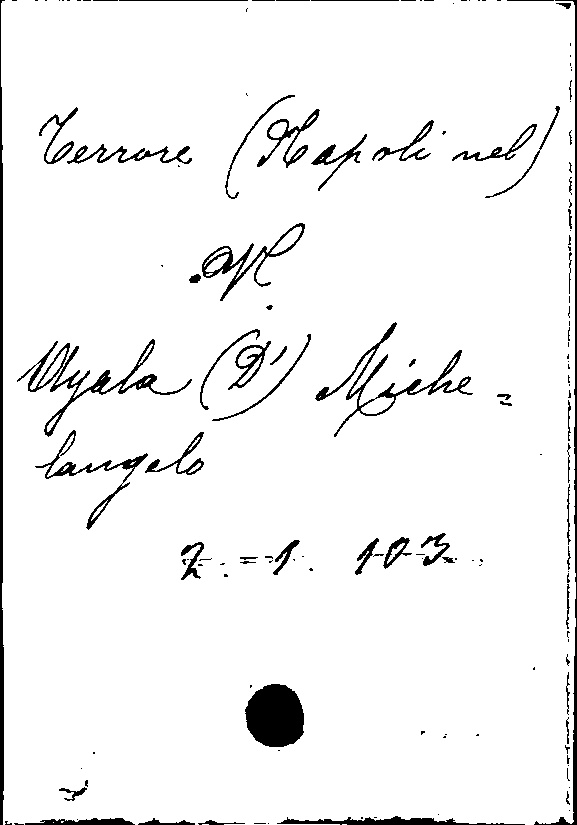 Terrore (Napoli nel)
Ayala (D') Miche=
langelo
2.=1. 103